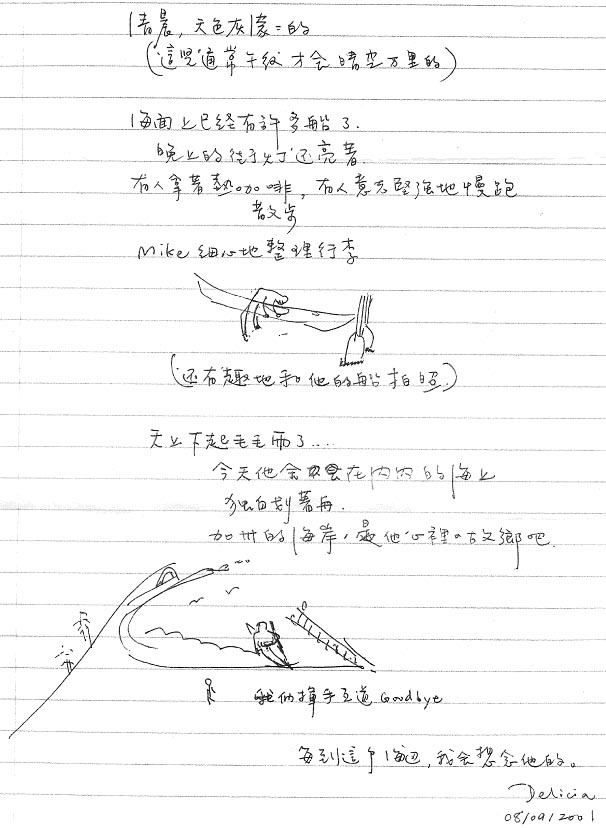 清晨，天色灰濛=的
(這兒通常午後才会晴空万里的)
海面上已经有許多船了.
晚上的徒灯还亮著.
有人拿著熱咖啡，有人意志堅強地慢跑
散步
Mike 细心地整理行李
(还有趣地和他的船拍照.)
天上下起毛毛雨了....
今天他会在內內的海上
独自划著舟.
加州的海岸，是他心裡の故鄉吧.
我们揮手互道 Goodbye
每到這个海边，我会想念他的。
Delicia
08/09/2001